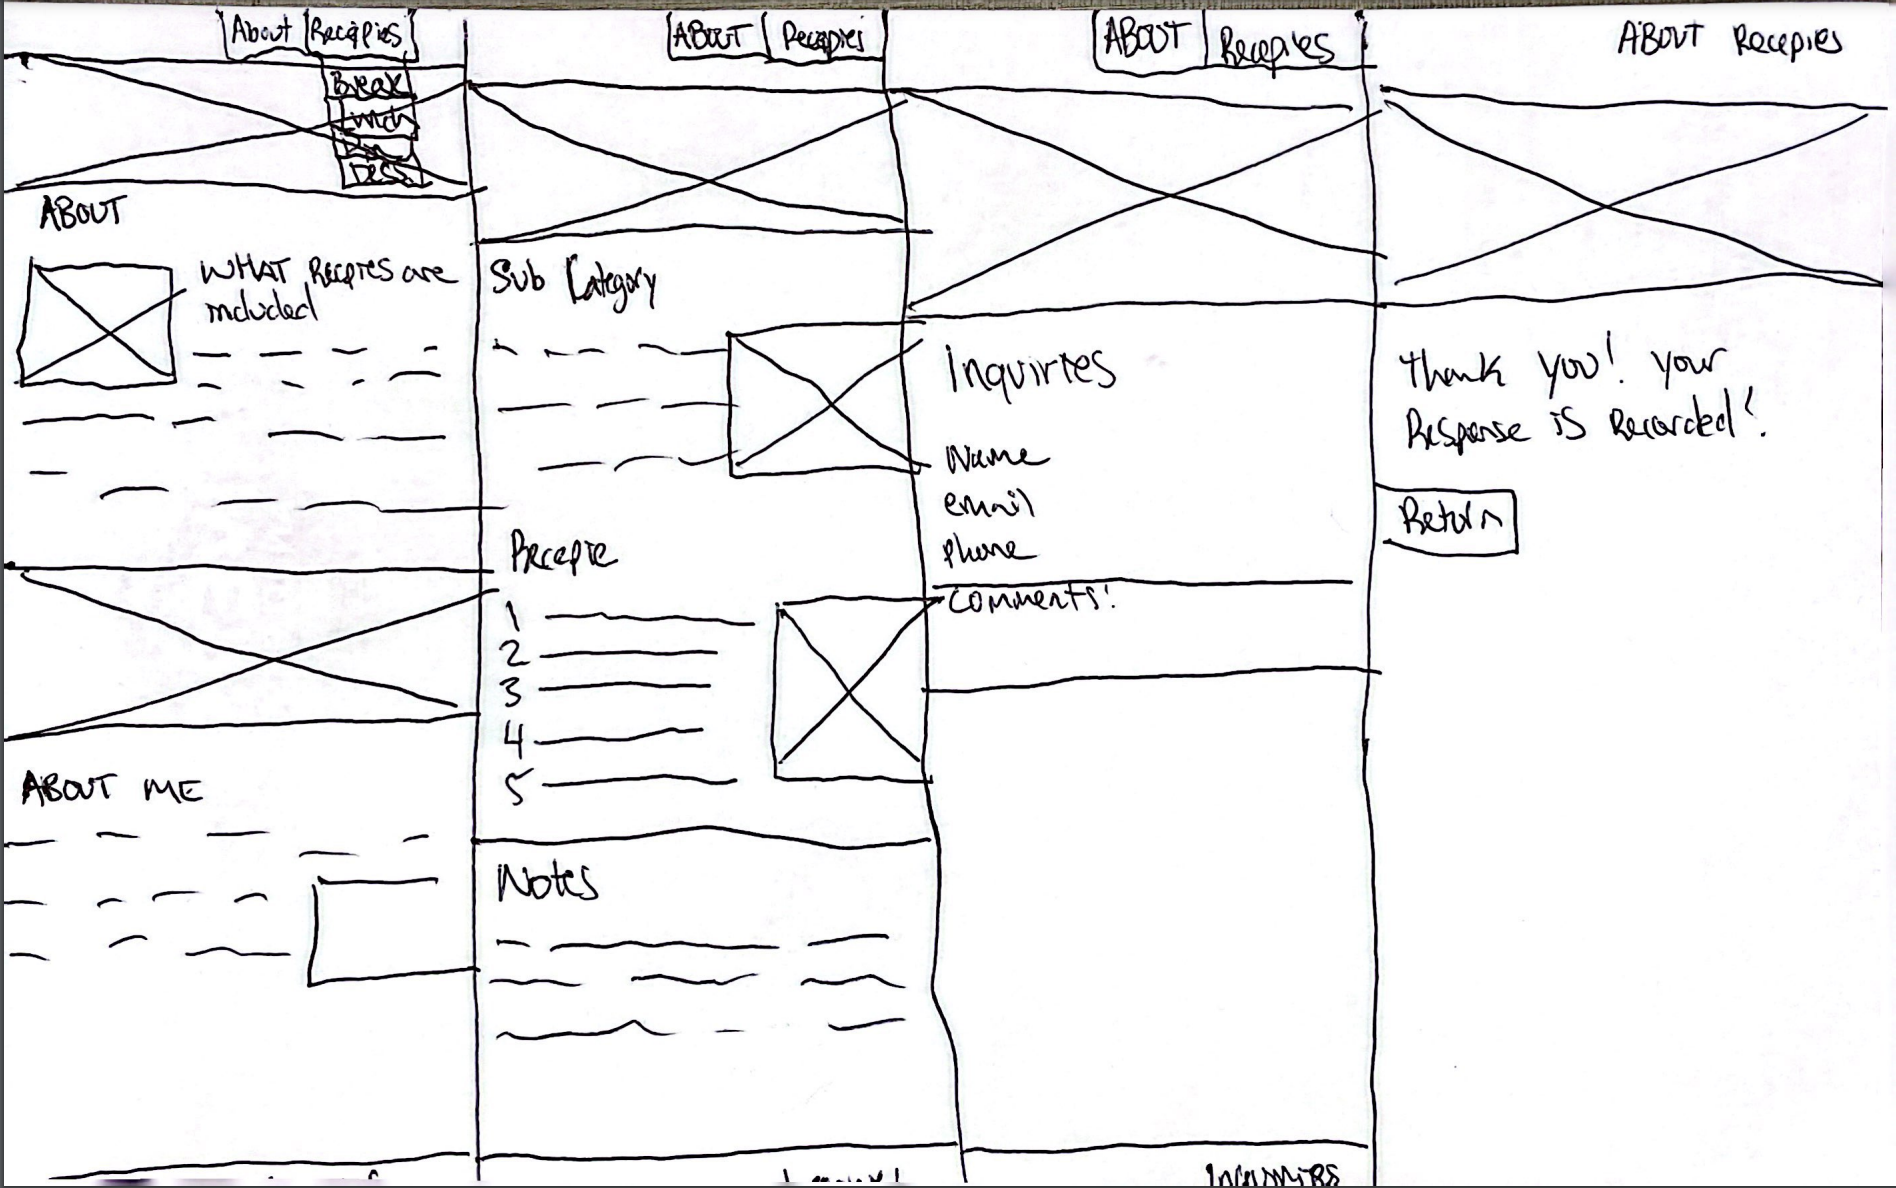 About Recipies
Break
Lunch
Dess
ABOUT
WHAT Recipies are
included
ABOUT ME
ABOUT Recepies
Sub Category
Recepie
1
2
3
4
5
Notes
ABOUT Recepies
Inquiries
Name
email
phone
Comments!
Inquiries
ABOUT Recepies
Thank you! your
Response is Recorded!
Return